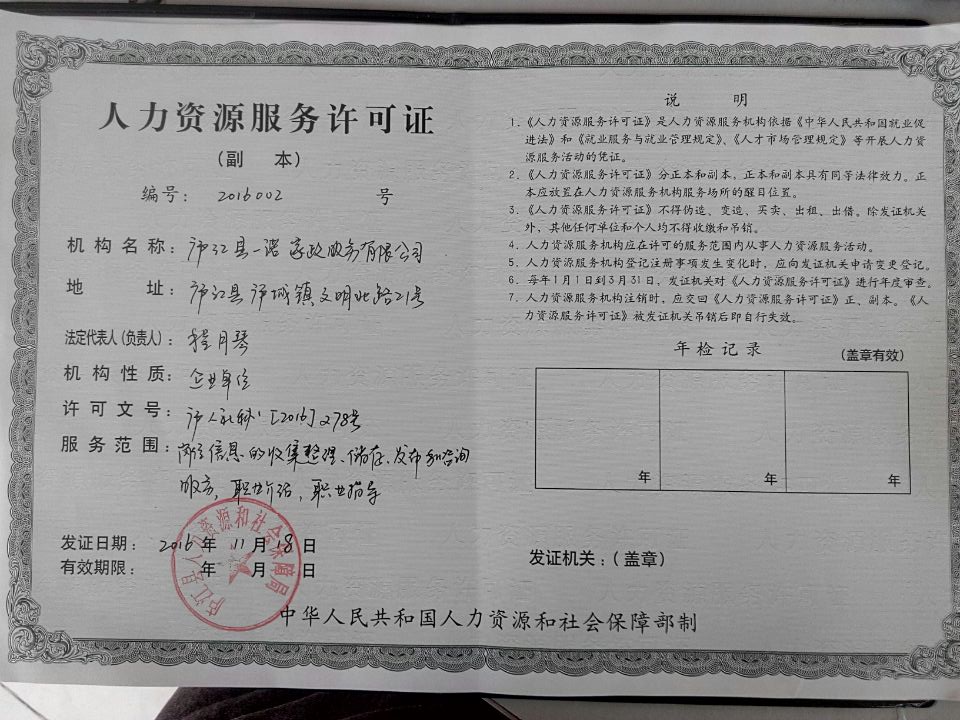 人力资源服务许可证
（副 本）
编号： 2016002 号
机构名称：庐江县一诺家政服务有限公司
地 址：庐江县庐城镇文明北路21号
法定代表人（负责人）：程月琴
机构性质：企业单位
许可文号：庐人社秘〔2016〕278号
服务范围：岗位信息的收集整理、储存、发布和咨询
服务，职业介绍，职业指导
发证日期：2016年11月18日
有效期限： 年 月 日
庐江县人力资源和社会保障局
说 明
1．《人力资源服务许可证》是人力资源服务机构依据《中华人民共和国就业促
进法》和《就业服务与就业管理规定》、《人才市场管理规定》等开展人力资
源服务活动的凭证。
2．《人力资源服务许可证》分正本和副本，正本和副本具有同等法律效力。正
本应放置在人力资源服务机构服务场所的醒目位置。
3．《人力资源服务许可证》不得伪造、变造、买卖、出租、出借。除发证机关
外，其他任何单位和个人均不得收缴和吊销。
4．人力资源服务机构应在许可的服务范围内从事人力资源服务活动。
5．人力资源服务机构登记注册事项发生变化时，应向发证机关申请变更登记。
6．每年1月1日到3月31日，发证机关对《人力资源服务许可证》进行年度审查。
7．人力资源服务机构注销时，应交回《人力资源服务许可证》正、副本。《人
力资源服务许可证》被发证机关吊销后即自行失效。
年检记录 （盖章有效）
年 年 年
发证机关：（盖章）
中华人民共和国人力资源和社会保障部制